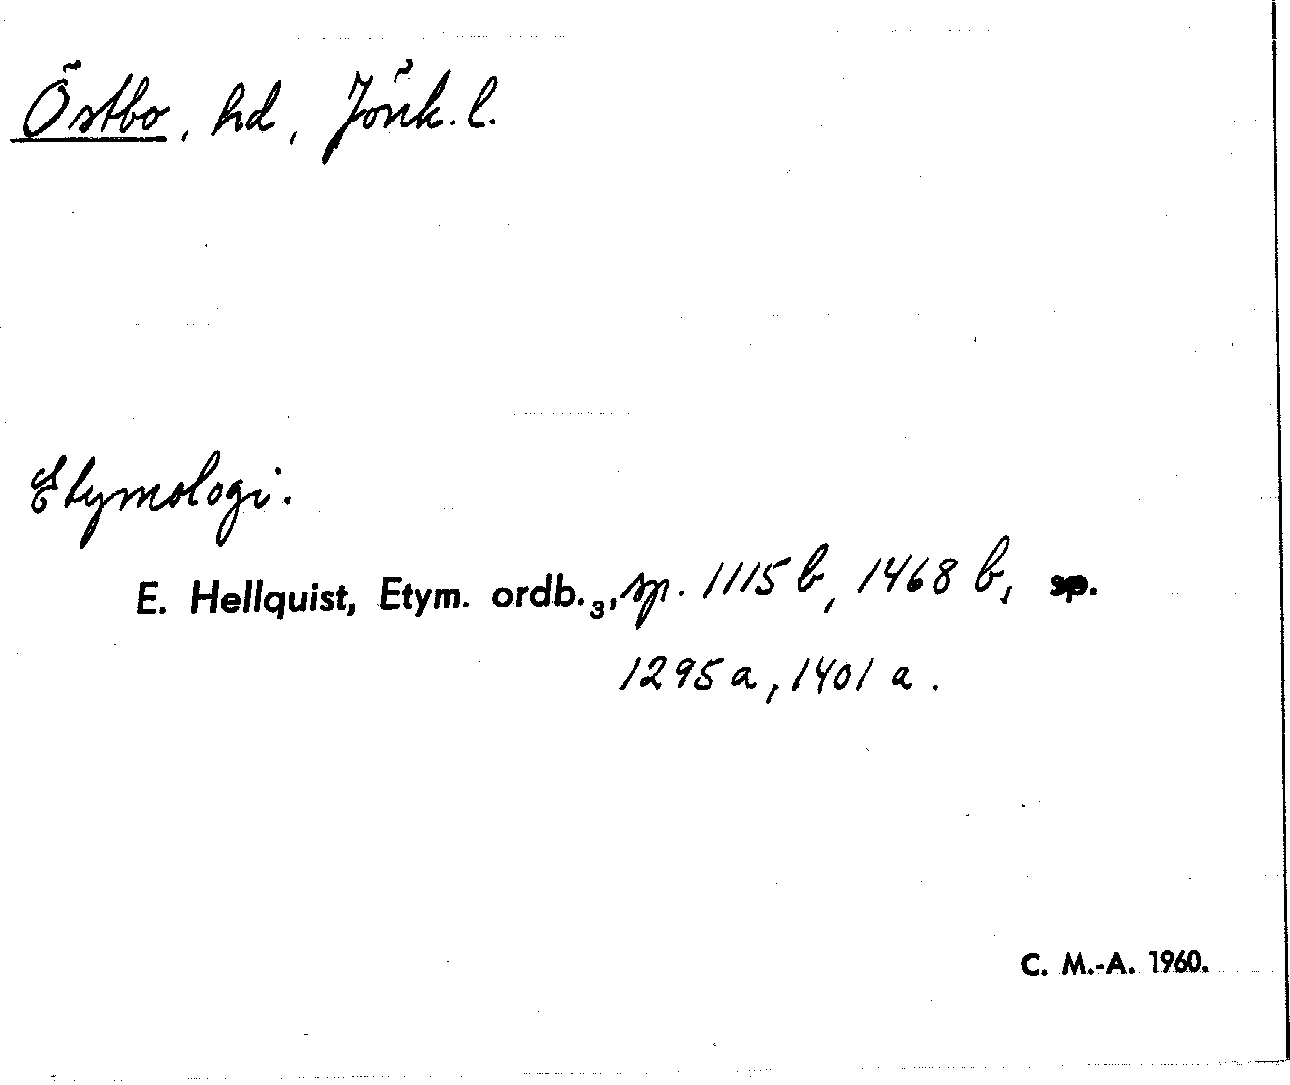 Östbo, hd, Jönk. l.
Etymologi.
E. Hellquist, Etym. ordb.₃, sp. 1115 b, 1468 b, sp.
1295 a, 1401 a.
C. M.-A. 1960.